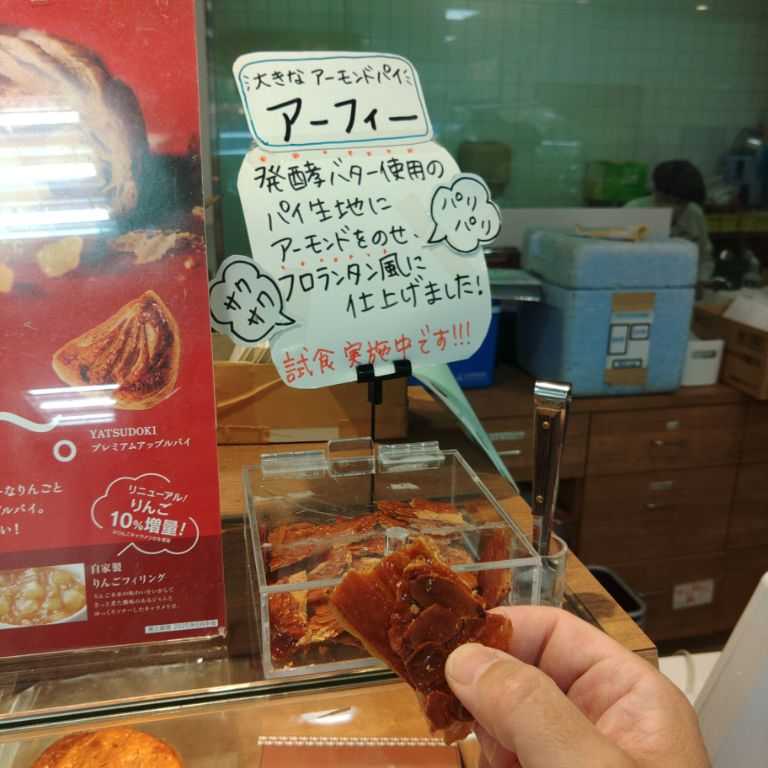 大きな アーモンドパイ
アーフィー
発酵バター使用の
パイ生地に
アーモンドをのせ、
フロランタン風に
仕上げました!
試食実施中です!!!
パリ
パリ
サク
サク
YATSUDOKI
プレミアムアップルパイ
リニューアル!
りんご
10%増量!
なりんごと
ルパイ。
い!
自家製
りんごフィリング